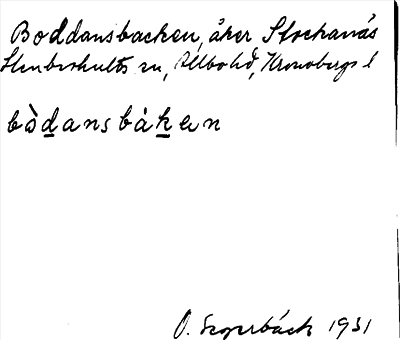 Boddansbacken, åker Stockanäs
Stenbrohults sn, Allbo hd, Kronobergs l
bòdansbáken
O. Segerbäck 1931